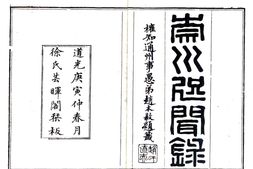 崇川咫聞錄
權知通州事愚弟趙未敘題籤
道光庚寅仲春月
徐氏芸暉閣栞板